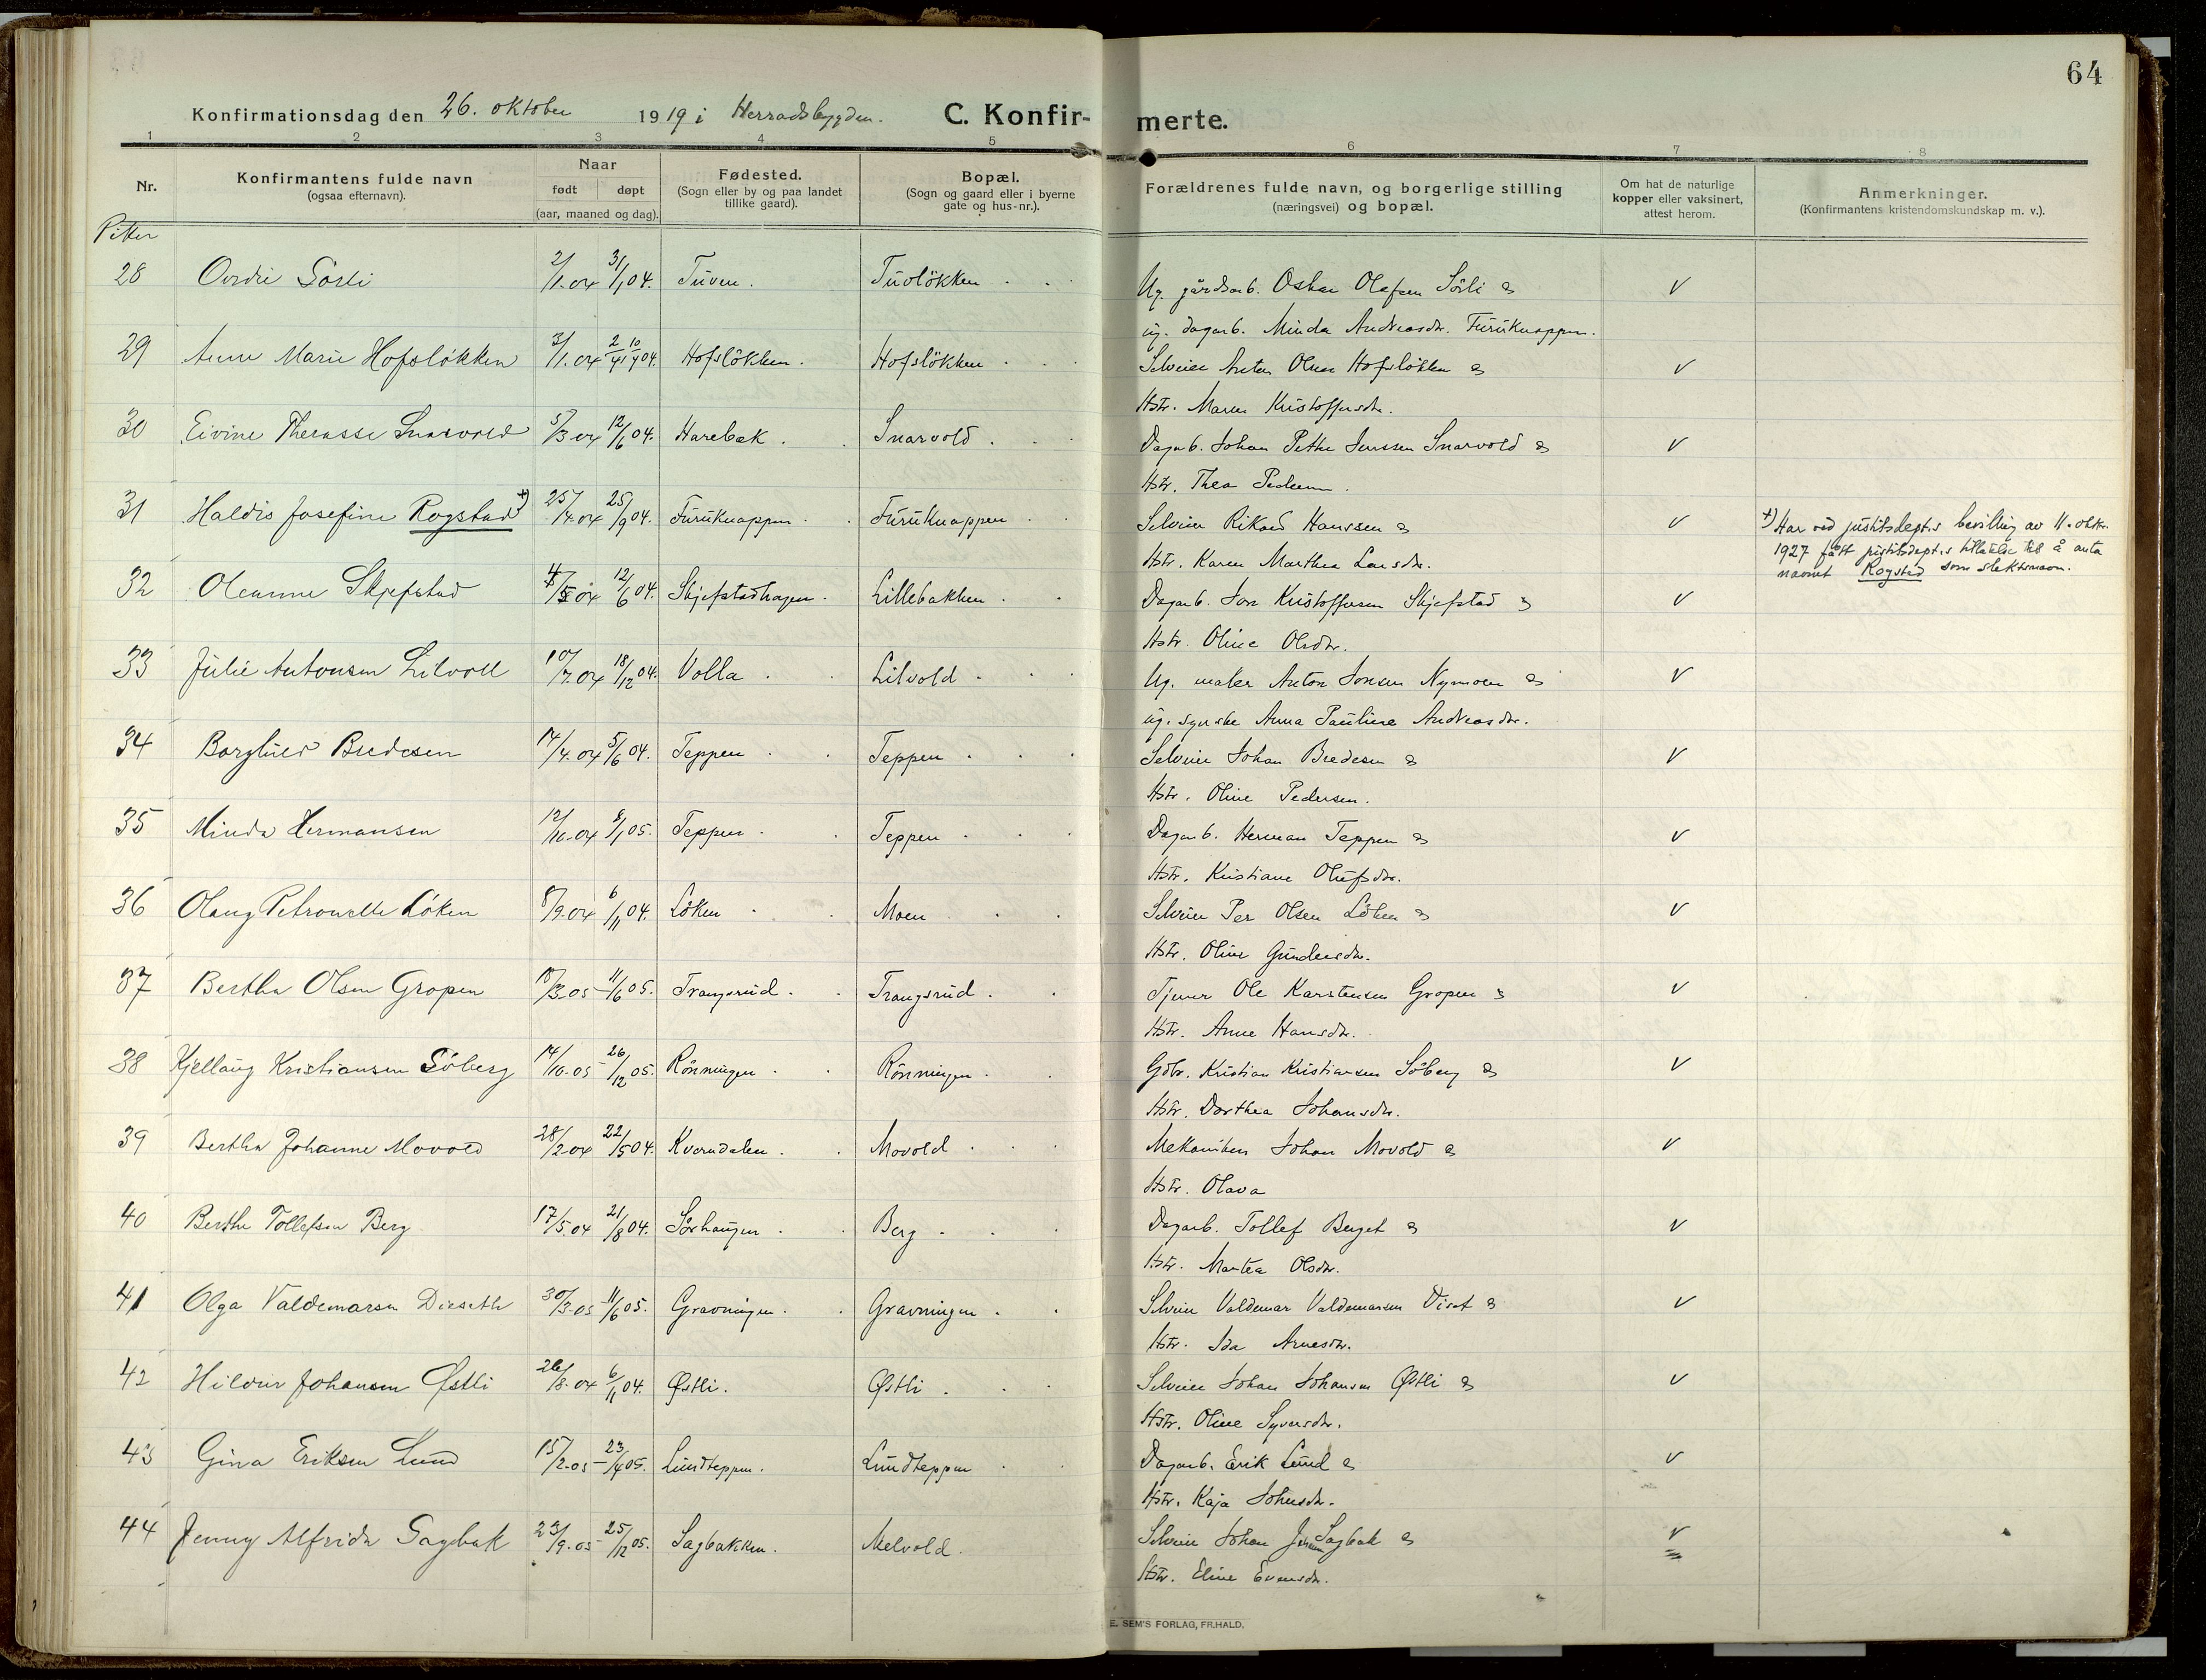 64
Konfirmationsdag den 26. oktober 1919 i Herradsbygden. C. Konfirmerte.
1 2 3 4 5 6 7 8
Nr.
Konfirmantens fulde navn
(ogsaa efternavn).
Naar
født døpt
(aar, maaned og dag).
Fødested.
(Sogn eller by og paa landet
tillike gaard).
Bopæl.
(Sogn og gaard eller i byerne
gate og hus-nr.).
Forældrenes fulde navn, og borgerlige stilling
(næringsvei) og bopæl.
Om hat de naturlige
kopper eller vaksinert,
attest herom.
Anmerkninger.
(Konfirmantens kristendomskundskap m. v.).
Piker
28 Ovidie Sörli 2/1.04 31/1 04. Tuven. Tuvlökken Ug. gårdsarb. Oskar Olafsen Sörli &
ug. dagarb. Minda Andreasdr. Furuknappen. V
29 Anne Marie Hofslökken 3/1.04 2/4 10/4 04. Hofslökken. Hofslökken Selveier Anton Olsen Hofslökken & V
Hstr. Maren Kristoffersdr.
30 Eivine Therasse Snarvold 5/3 04 12/6 04. Harebek. Snarvold. Dagarb. Johan Petter Jenssen Snarvold & V
Hstr. Thea Pedersen.
31 Haldis Josefine Rogstad +) 25/4.04 25/9 04. Furuknappen. Furuknappen Selveier Rikard Hanssen & V
Hstr. Karen Marthea Larsdr.
+) Har ved justitsdept.s bevilling av 11. oktr.
1927 fått justitsdept.s tillatelse til å anta
navnet Rogstad som slektsnavn.
32 Oleanne Skjefstad 4/5 04 12/6 04. Skjefstadhagen. Lillebakken. Dagarb. Jon Kristoffersen Skjefstad & V
Hstr. Oline Olsdr.
33 Julie Antonsen Lilvold 10/7.04 18/12 04. Volla. Lilvold. Ug. maler Anton Jonsen Nymoen & V
ug. syerske Anna Pauline Andreasdr.
34 Borghild Bredesen 14/4.04 5/6 04. Teppen. Teppen. Selveier Johan Bredesen & V
Hstr. Oline Pedersen.
35 Minda Hermansen 12/10.04 8/1 05. Teppen. Teppen. Dagarb. Herman Teppen & V
Hstr. Kristiane Olufsdr.
36 Olaug Petronelle Löken 8/9.04 6/11 04. Löken. Moen Selveier Per Olsen Löken & V
Hstr. Oline Gundersdr.
37 Bertha Olsen Gropen 18/3.05 11/6 05. Trangsrud. Trangsrud. Tjener Ole Karstensen Gropen & V
Hstr. Anne Hansdr.
38 Kjellaug Kristiansen Söberg 14/10.05 26/12 05. Rönningen. Rönningen. Gdbr. Kristian Kristiansen Söberg & V
Hstr. Dorthea Johansdr.
39 Bertha Johanne Movold 28/2 04 22/5 04. Kverndalen. Movold. Mekaniker Johan Movold & V
Hstr. Olava
40 Berthe Tollefsen Berg 17/5.04 21/8 04. Sörhaugen. Berg. Dagarb. Tollef Berget & V
Hstr. Martea Olsdr.
41 Olga Valdemarsen Dieseth 30/3.05 11/6 05. Gravningen. Gravningen. Selveier Valdemar Valdemarsen Diset & V
Hstr. Ida Arnesdr.
42 Hildur Johansen Østli 26/8.04 6/11 04. Østli. Østli. Selveier Johan Johansen Østli & V
Hstr. Oline Syversdr.
43 Gina Eriksen Lund 15/2.05 23/4 05. Lundteppen. Lundteppen Dagarb. Erik Lund & V
Hstr. Kaja Johnsdr.
44 Jenny Alfrida Sagbak 23/9.05 25/12 05. Sagbakken. Melvold. Selveier Johan Jensen Sagbak & V
Hstr. Eline Evensdr.
E. SEM'S FORLAG, FR.HALD.